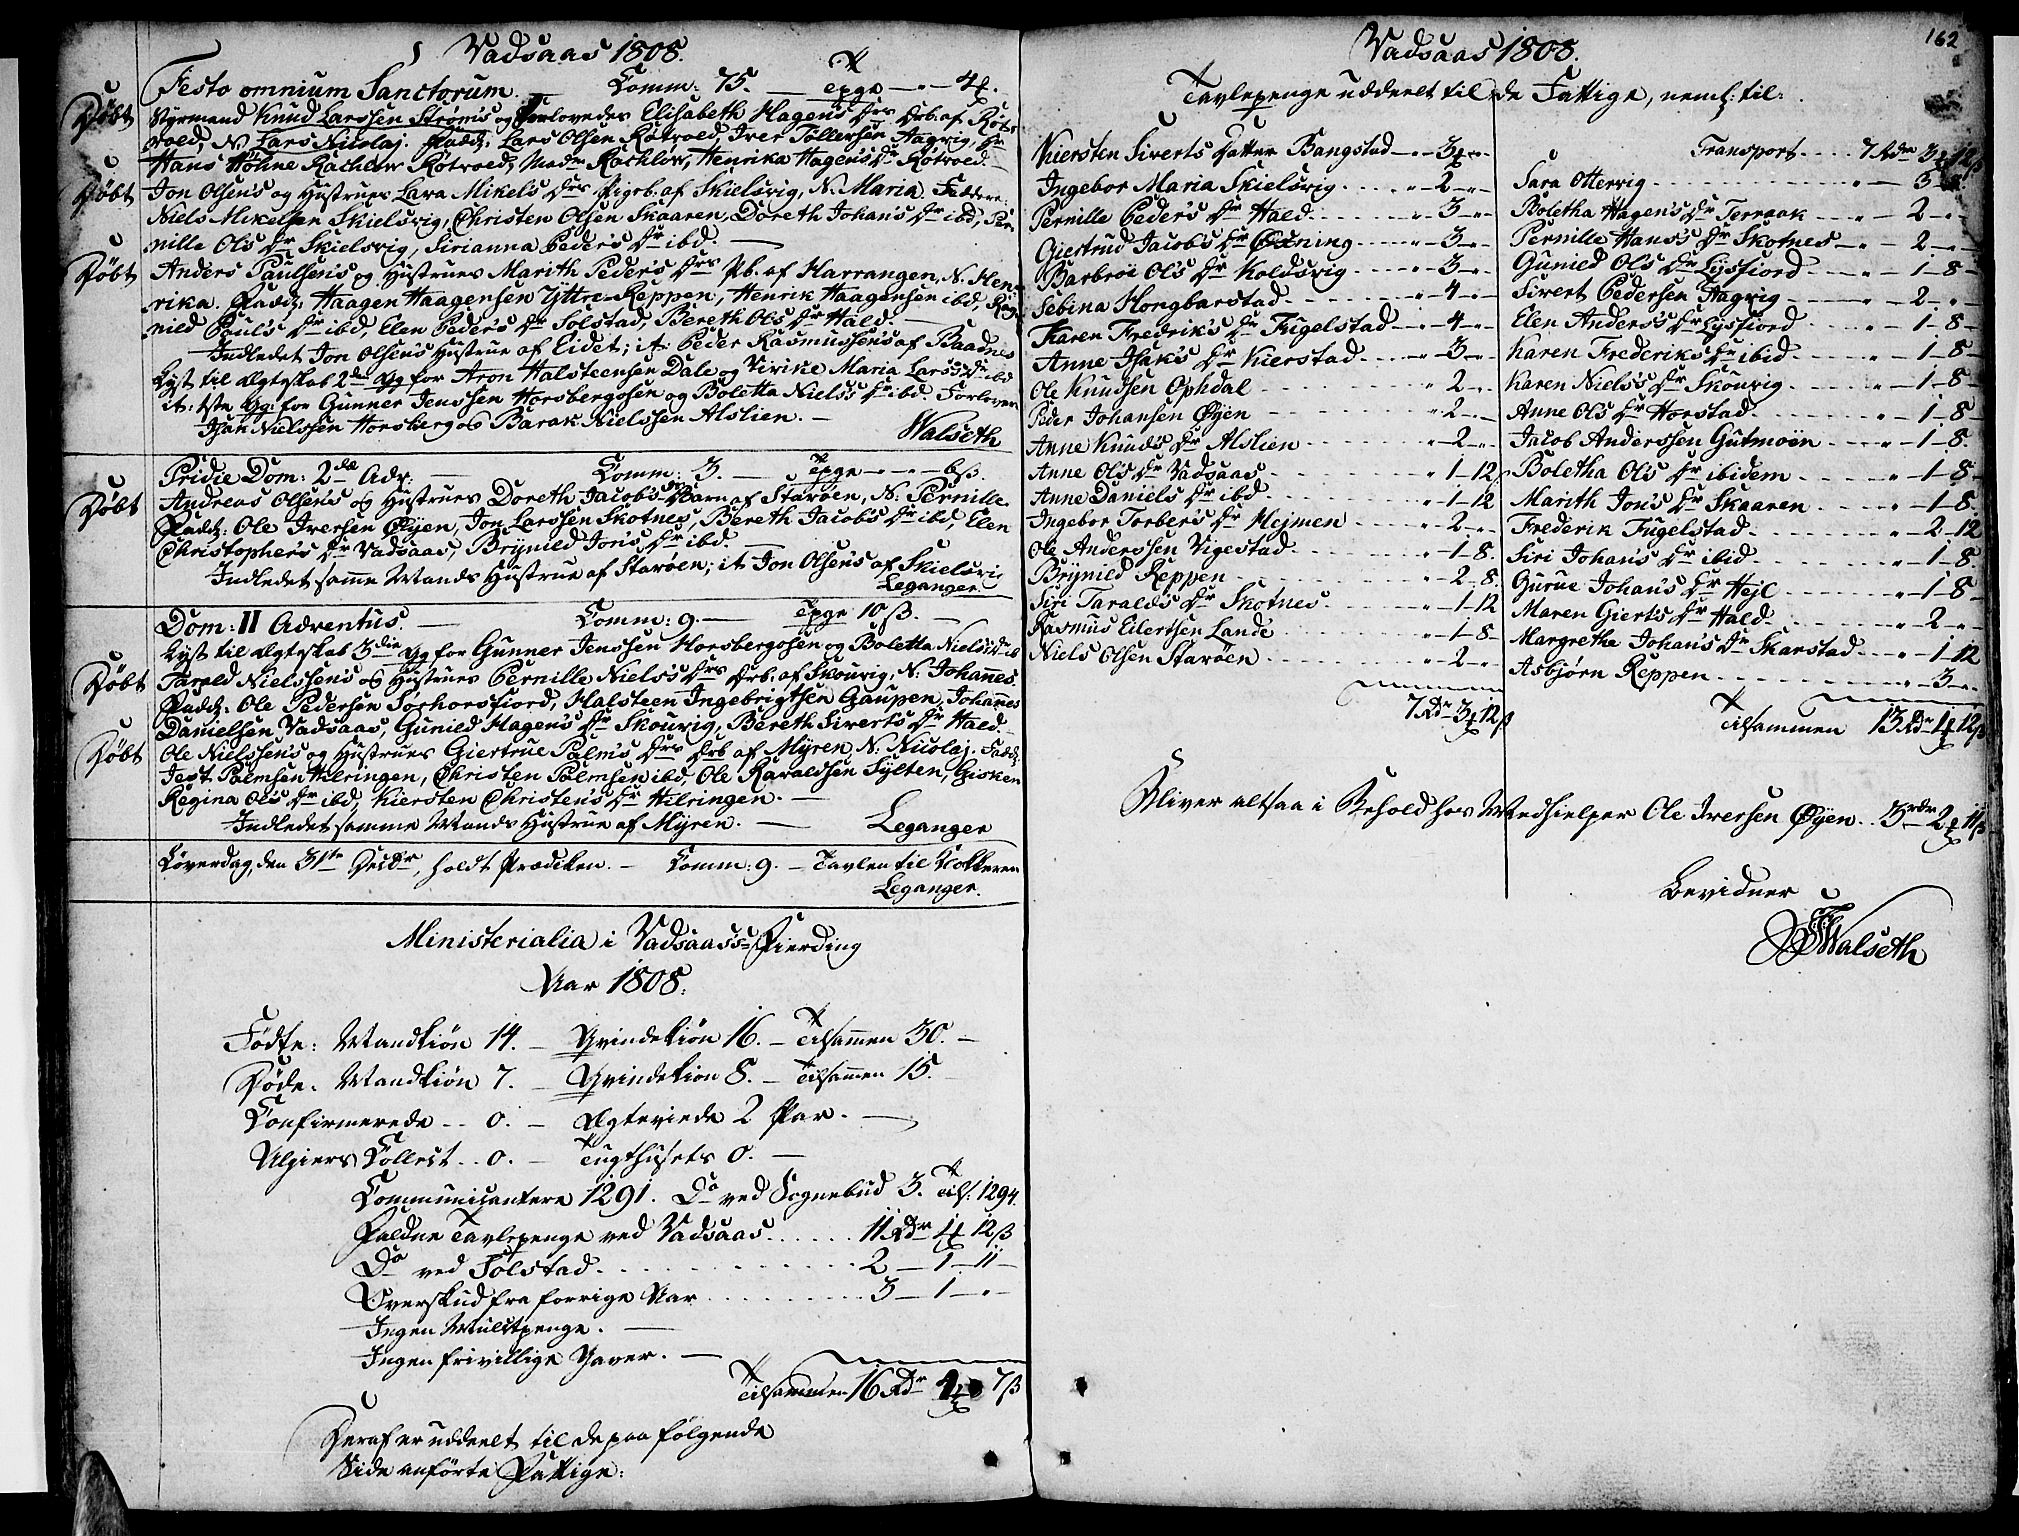 Vadsaas 1808.
Festo omnium Sanctorum. — Comm: 75. — Tpge — " — 4 ¥.
Døbt
Styrmand Knud Larssen Strøms og Forlovedes Elisabeth Hagens Drs Drb. af Røt-
roed, N. Lars Nicolaj. Fadd: Lars Olsen Røtroed, Iver Tollersen Aagvig, Hr
Hans Høhne Rachlow Røtroed, Madm Rachlow, Henrika Hagens Dr Røtroed.
Døbt
Jon Olsens og Hustrues Lara Mikels Drs Pigeb. af Skielsvig, N. Maria. Faddere:
Niels Mikelsen Skielsvig, Christen Olsen Skaaren, Doreth Johans Dr ibd, Per-
nille Ols Dr Skielsvig, Sirianna Peders Dr ibd. —
Døbt
Anders Paulsens og Hustrues Marith Peders Drs Pb. af Harrangen, N. Hen-
rika. Fadd: Haagen Haagensen Yttre-Reppen, Henrik Haagensen ibd, Rag-
nild Pouls Dr ibd, Elen Peders Dr Solstad, Bereth Ols Dr Hald. —
Indledet Jon Olsens Hustrue af Eidet; it: Peder Rasmussens af Baadnes
Lyst til Ægteskab 2den Gg for Aron Halsteensen Dale og Virike Maria Larss Dr ibd
it: 1ste Gg: for Gunner Jenssen Horsbergosen og Boletta Nielss Dr ibd. Forlovere
Isak Nielssen Horsberg og Barak Nielssen Alslien. —
Walseth
Pridie Dom: 2da Adv: — Comm: 3. — Tpge — " — 6 ß.
Døbt
Andreas Olsens og Hustrues Doreth Jacobs Drs Barn af Starøen, N: Pernille.
Fadd: Ole Iversen Øyen, Jon Larssen Skotnes, Bereth Jacobs Dr ibd, Elen
Christophers Dr Vadsaas, Brynild Jons Dr ibd. —
Indledet samme Mands Hustrue af Starøen; it Jon Olsens af Skielsvig
Leganger.
Dom: II Adventus. — Comm: 9. — Tpge 10 ß. —
Lyst til Ægteskab 3die Gg for Gunner Jenssen Horsbergosen og Boletta Nielss Dr ib
Døbt
Tarald Nielssens og Hustrues Pernille Nielss Drs Drb. af Skouvig, N: Johannes.
Fadd: Ole Pedersen Sørhorsfiord, Halsteen Ingebrigtsen Gaupen, Johannes
Danielsen Vadsaas, Gunild Hagens Dr Skouvig, Bereth Siverts Dr Hald. —
Døbt
Ole Nielssens og Hustrues Giertrue Palms Drs Drb af Myren, N: Nicolaj. Fadd:
Jest Palmsen Hilringen, Christen Palmsen ibd, Ole Haraldsen Sylten, Gisken
Regina Ols Dr ibd, Kiersten Christens Dr Hilringen. —
Indledet samme Mands Hustrue af Myren. — Leganger
Løverdag, den 31te Decbr, holdt Prædiken. — Comm: 9. — Tavlen til Klokkeren
Leganger.
Ministerialia i Vadsaas's Fierding
Aar 1808.
Fødte: Mandkiøn 14. — Qvindekiøn 16. — Tilsammen 30. —
Døde: Mandkiøn 7. — Qvindekiøn 8. — Tilsammen 15.
Confirmerede .. 0. — Ægteviede 2 Par. —
Algiers Collect .. 0. — Tugthusets 0. —
Communicantere 1291. Do ved Sognebud 3. Tils: 1294.
Faldne Tavlepenge ved Vadsaas ..... 11 Rdr 1 ¥ 12 ß
Do ved Solstad ..... 2 — 1 — 11 —
Overskud fra forrige Aar ..... 3 — 1 — " —
Ingen Mulctpenge. —
Ingen frivillige Gaver. —
Tilsammen 16 Rdr 4 ¥ 7 ß
Deraf er uddeelt til de paa følgende
Side anførte Fattige:
162
Vadsaas 1808.
Tavlepenge uddeelt til de Fattige, neml: til:
Kiersten Siverts Datter Bangstad — " — 3 ¥ " —
Ingebor Maria Skielsvig .... " — 2 — " —
Pernille Peders Dr Hald .... " — 3 — " —
Giertrud Jacobs Dr Øxning .... " — 3 — " —
Barbroe Ols Dr Koldsvig .... " — 3 — " —
Sebina Hongbarstad .... " — 4 — " —
Karen Fredriks Dr Fugelstad — " — 4 — " —
Anne Isaks Dr Kierstad .... " — 3 — " —
Ole Knudsen Ophdal .... " 2 — " —
Peder Johansen Øyen .... " — 2 — " —
Anne Knuds Dr Alslien .... " — 2 — " —
Anne Ols Dr Vadsaas .... " 1 — 12
Anne Daniels Dr ibd .... " — 1 — 12
Ingebor Torbers Dr Hejmen .... " — 2 — " —
Ole Anderssen Vigestad .... " — 1 — 8.
Brynild Reppen .... " — 2 — 8.
Siri Taralds Dr Skotnes .... " — 1 — 12
Rasmus Eilertsen Lande .... " — 1 — 8 —
Niels Olsen Starøen .... " — 2 — " —
7 Rdr 3 ¥ 12 ß
Transport .... 7 Rdr 3 ¥ 12 ß
Sara Ottervig .... " — 3 — 8.
Boletha Hagens Dr Terraak — " — 2 — " —
Pernille Hans's Dr Skotnes — " — 2 — " —
Gunild Ols Dr Lysfiord .... " — 1 — 8 —
Sivert Pedersen Aagvig .... " — 2 — " —
Elen Anders's Dr Lysfiord .... " — 1 — 8 —
Karen Frederiks Dr ibid .... " — 1 — 8 —
Karen Niels's Dr Skouvig .... " — 1 — 8 —
Anne Ols Dr Horstad .... " — 1 — 8 —
Jacob Anderssen Gutmoen .... " — 1 — 8.
Boletha Ols Dr ibidem .... " — 1 — 8
Marith Jons Dr Skaaren .... " — 1 — 8.
Frederik Fugelstad .... " — 2 — 12
Siri Johans Dr ibid .... " — 1 — 8.
Gurue Johans Dr Hejl .... " — 1 — 8 —
Maren Gierts Dr Hald .... " — 2 — " —
Margrethe Johans Dr Skarstad .... " — 1 — 12
Asbjørn Reppen .... " — 3 — " —
Tilsammen 13 Rdr 1 ¥ 12 ß
Bliver altsaa i Behold hos Medhielper Ole Iversen Øyen .. 3 rdr 2 ¥ 11 ß
Bevidner
Walseth